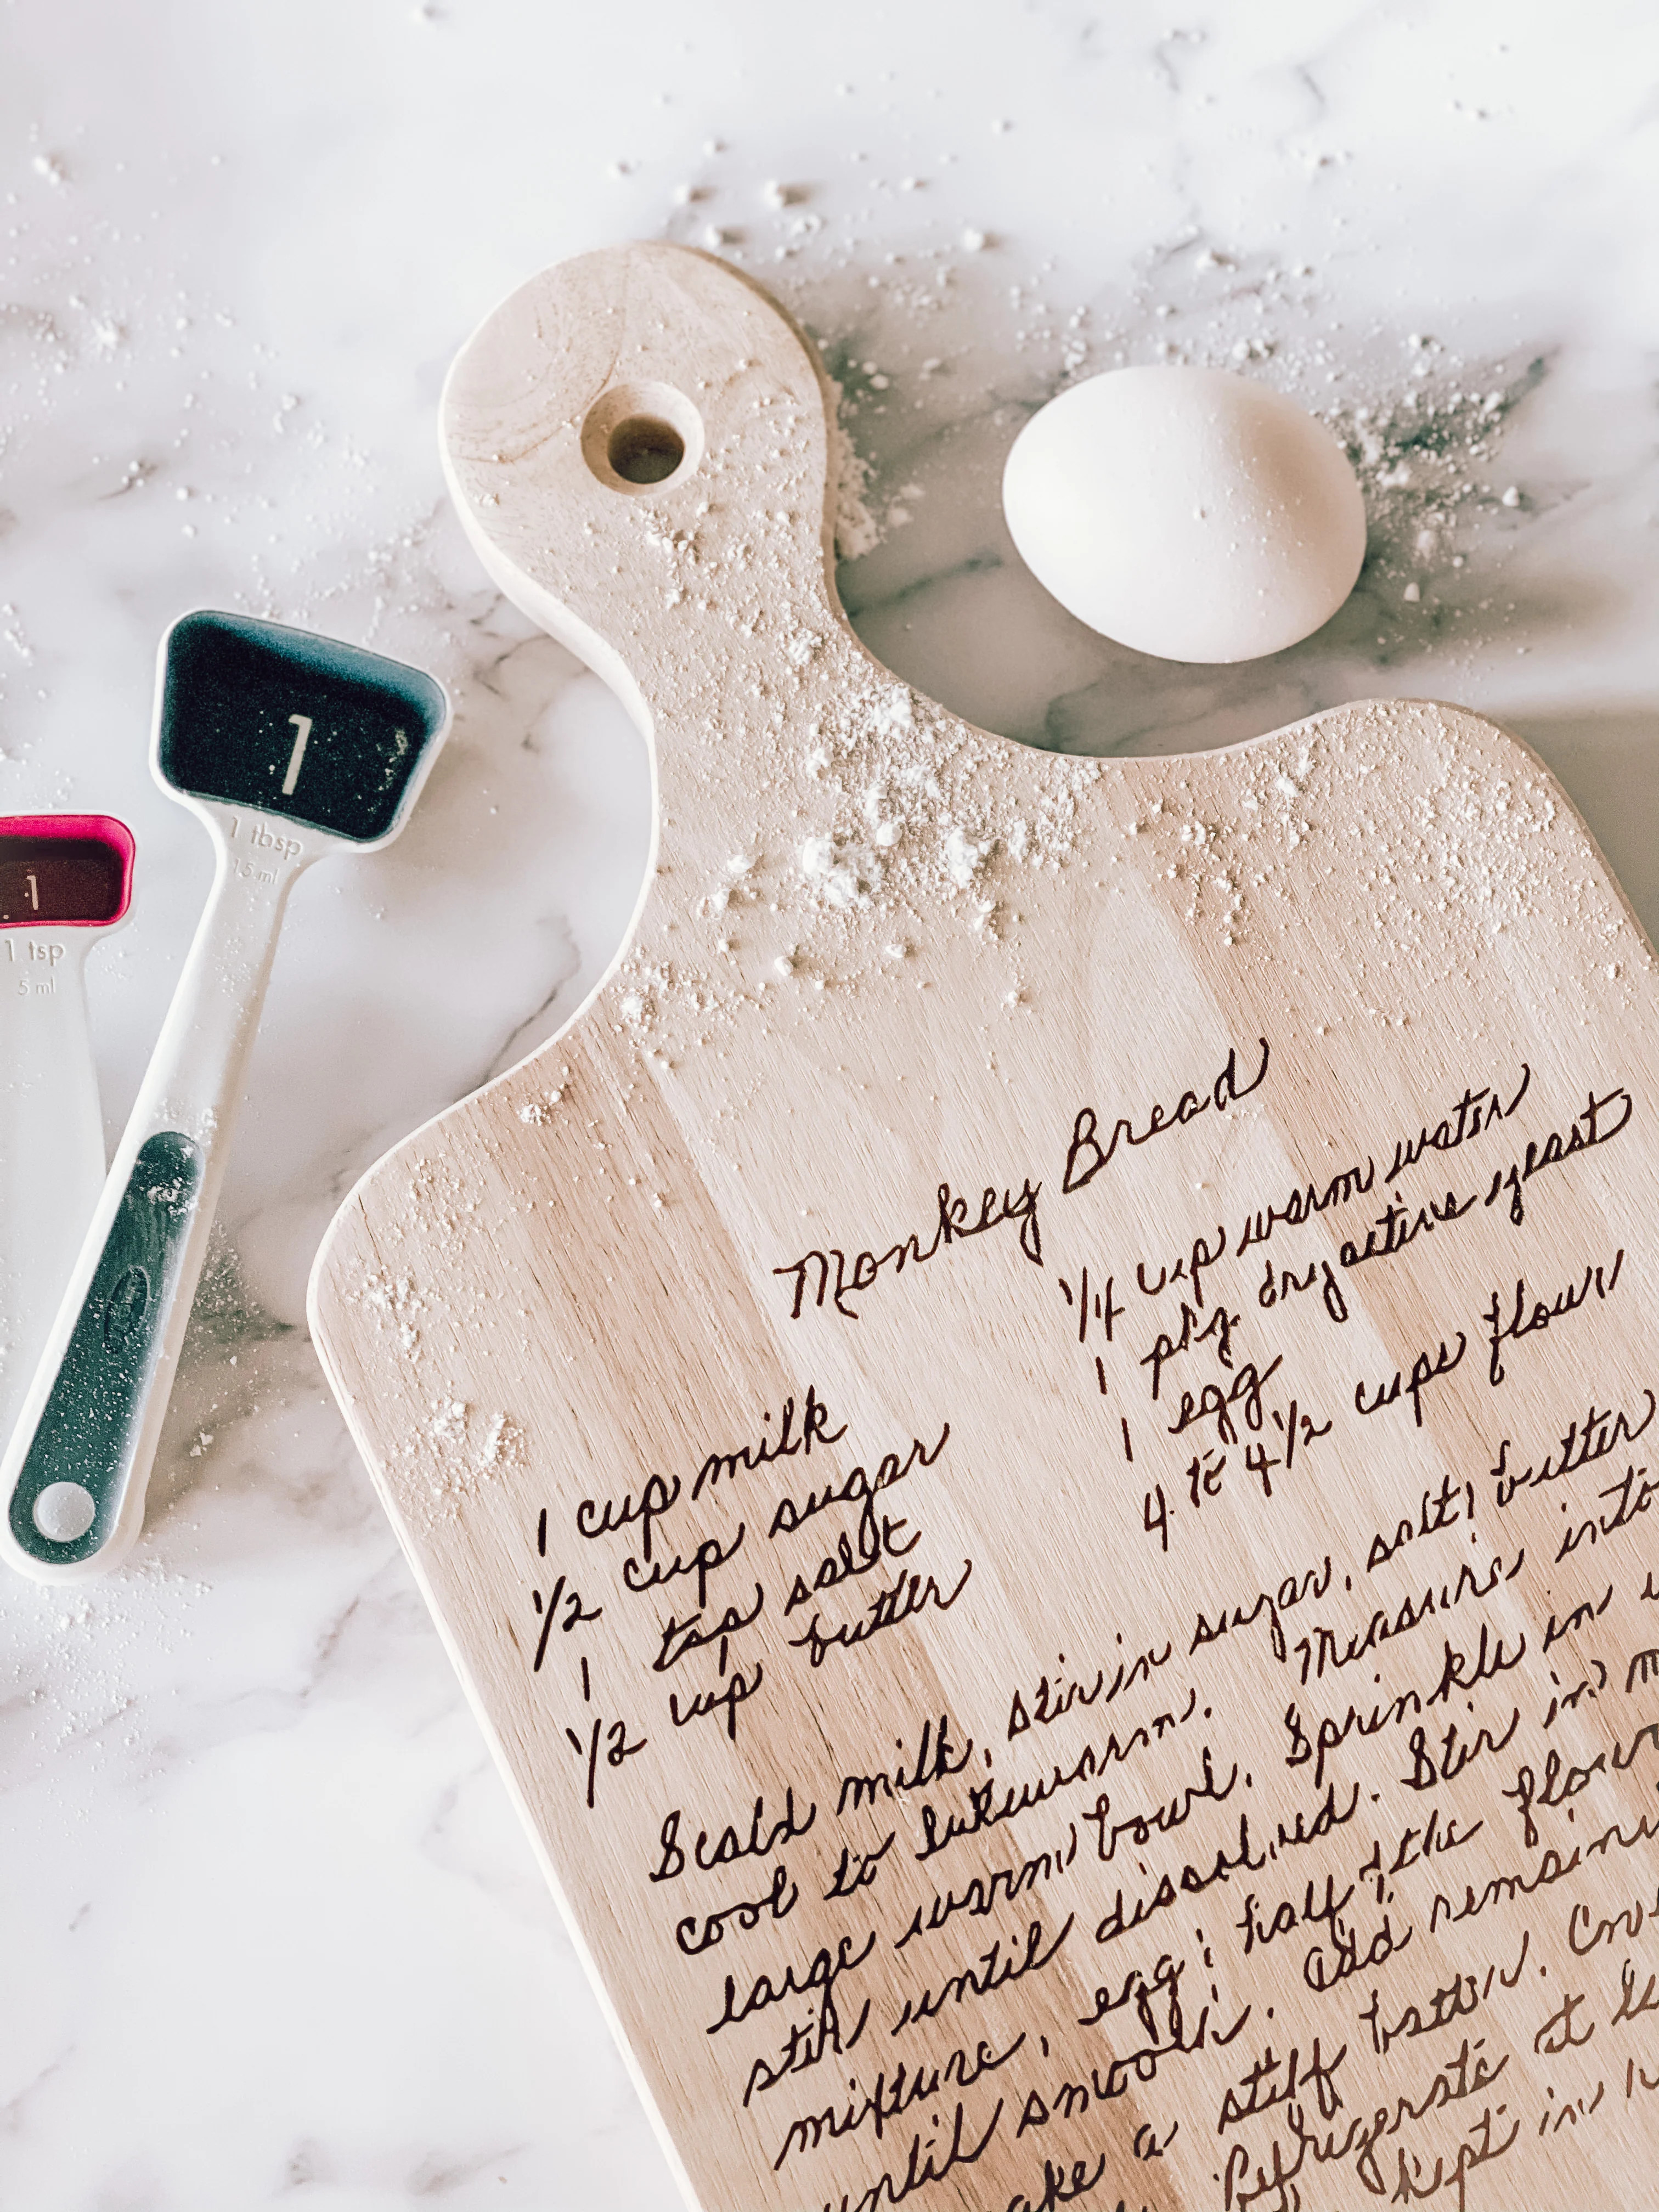 1
1 tbsp
15 ml
1
1 tsp
5 ml
OXO
Monkey Bread
1 cup milk
1/2 cup sugar
1 tsp salt
1/2 cup butter
1/4 cup warm water
1 pkg dry active yeast
1 egg
4 to 4 1/2 cups flour
Scald milk, stir in sugar, salt, butter
cool to lukewarm. Measure into
large warm bowl. Sprinkle in
stir until dissolved. Stir in m
mixture, egg, half the flour
until smooth. Add remaini
ake a stiff batter. Cove
Refrigerate at le
kept in